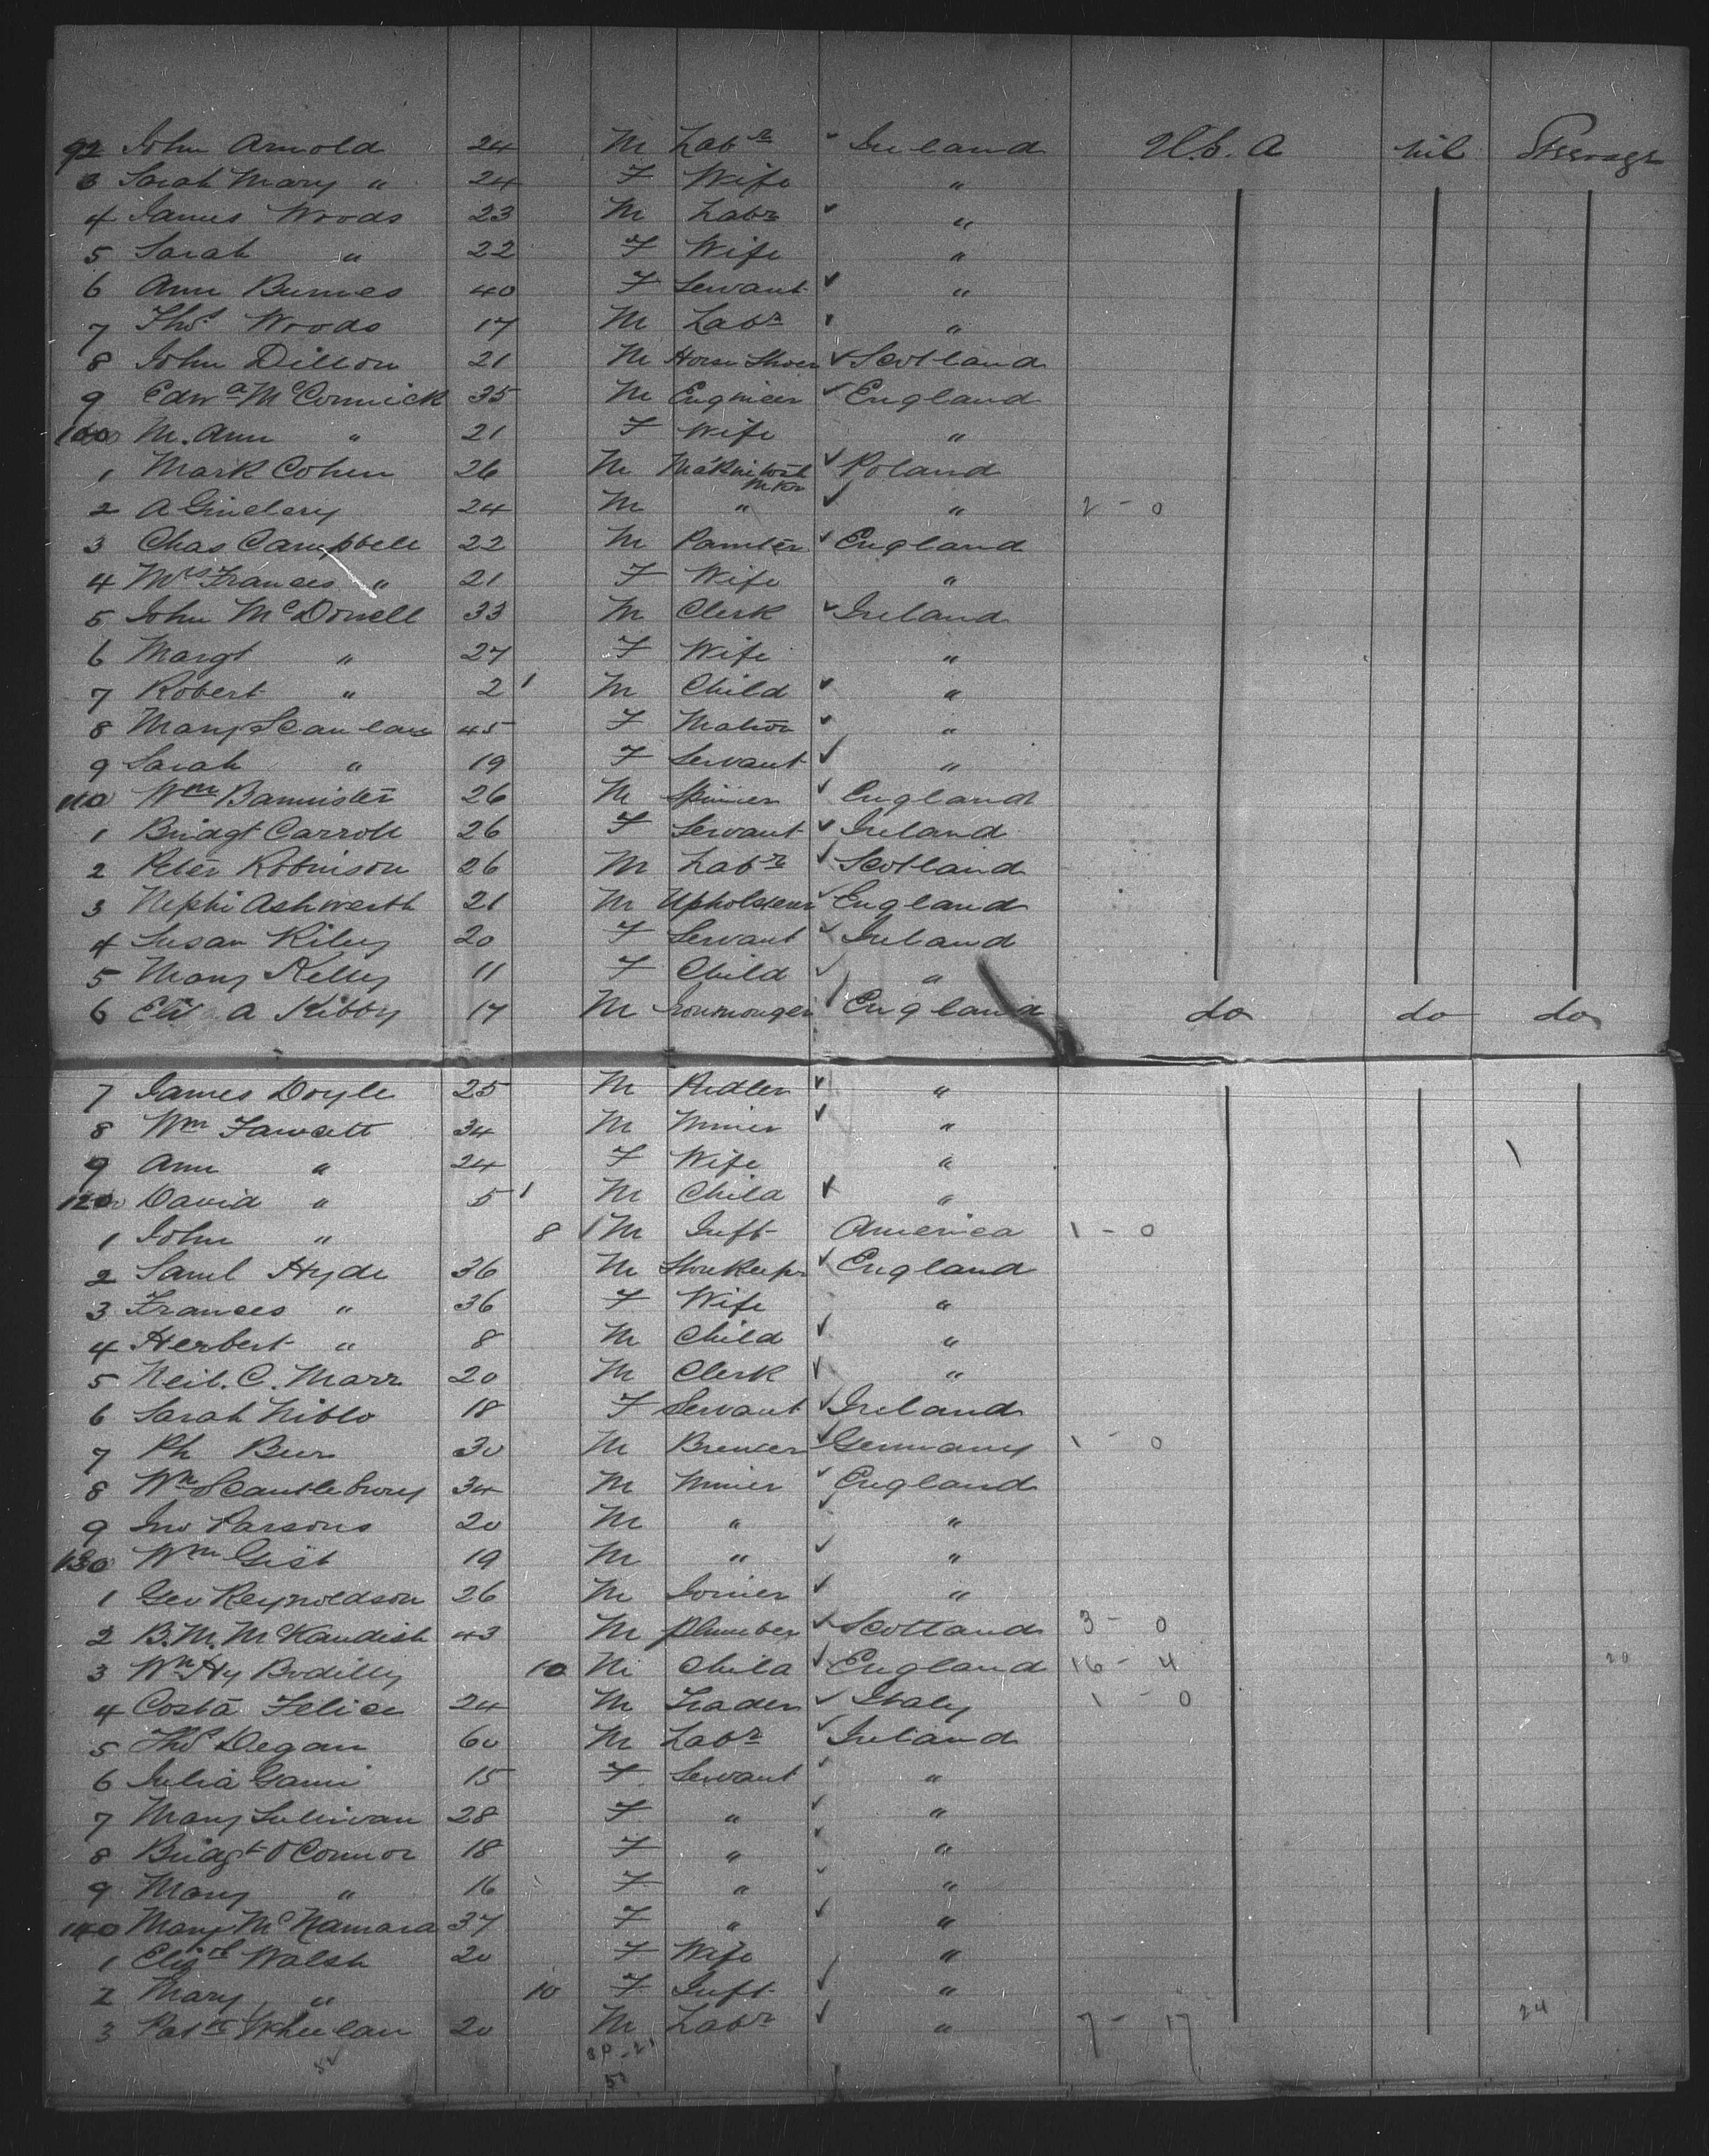 92 John Arnold 24 M Labr Ireland U.S.A nil Steerage
3 Sarah Mary " 24 F Wife "
4 James Woods 23 M Labr "
5 Sarah " 22 F Wife "
6 Ann Burnes 40 F Servant "
7 Thos Woods 17 M Labr "
8 John Dillon 21 M Horse Shoer Scotland
9 Edwd McCormick 35 M Engineer England
100 M. Ann " 21 F Wife "
1 Mark Cohen 26 M Makintosh Mkr Poland
2 A 24 M " " 2 - 0
3 Chas Campbell 22 M Painter England
4 Mrs Frances " 21 F Wife "
5 John McDonell 33 M Clerk Ireland
6 Margt " 27 F Wife "
7 Robert " 2 1 M Child "
8 Mary Scanlan 45 F Matron "
9 Sarah " 19 F Servant "
110 Wm Bannister 26 M Spinner England
1 Bridgt Carroll 26 F Servant Ireland
2 Peter Robinson 26 M Labr Scotland
3 Nephi Ashworth 21 M Upholsterer England
4 Susan Riley 20 F Servant Ireland
5 Mary Kelly 11 F Child "
6 A Kibby 17 M Ironmonger England do do do
7 James Doyle 25 M Pedler "
8 Wm Fawcett 34 M Miner "
9 Ann " 24 F Wife "
120 David " 5 1 M Child "
1 John " 8 1 M Inft America 1 - 0
2 Saml Hyde 36 M Storekeepr England
3 Frances " 36 F Wife "
4 Herbert " 8 M Child "
5 Neil. C. Marr 20 M Clerk "
6 Sarah Niblo 18 F Servant Ireland
7 Ph 30 M Brewer Germany 1 - 0
8 Wm Scantlebury 34 M Miner England
9 Jno Parsons 20 M " "
130 Wm Gist 19 M " "
1 Geo Reynoldson 26 M Joiner "
2 B. M. McKandish 43 M Plumber Scotland 3 - 0
3 Wm Hy Bodilly 10 M Child England 16 - 4 20
4 Costa Felice 24 M Trader Italy 1 - 0
5 Thos Degan 60 M Labr Ireland
6 Julia 15 F Servant "
7 Mary Sullivan 28 F " "
8 Bridgt O'Connor 18 F " "
9 Mary " 16 F " "
140 Mary McNamara 37 F " "
1 Elizth Walsh 20 F Wife "
2 Mary " 10 F Inft "
3 Patk Wheelan 20 M Labr " 7 - 17 24